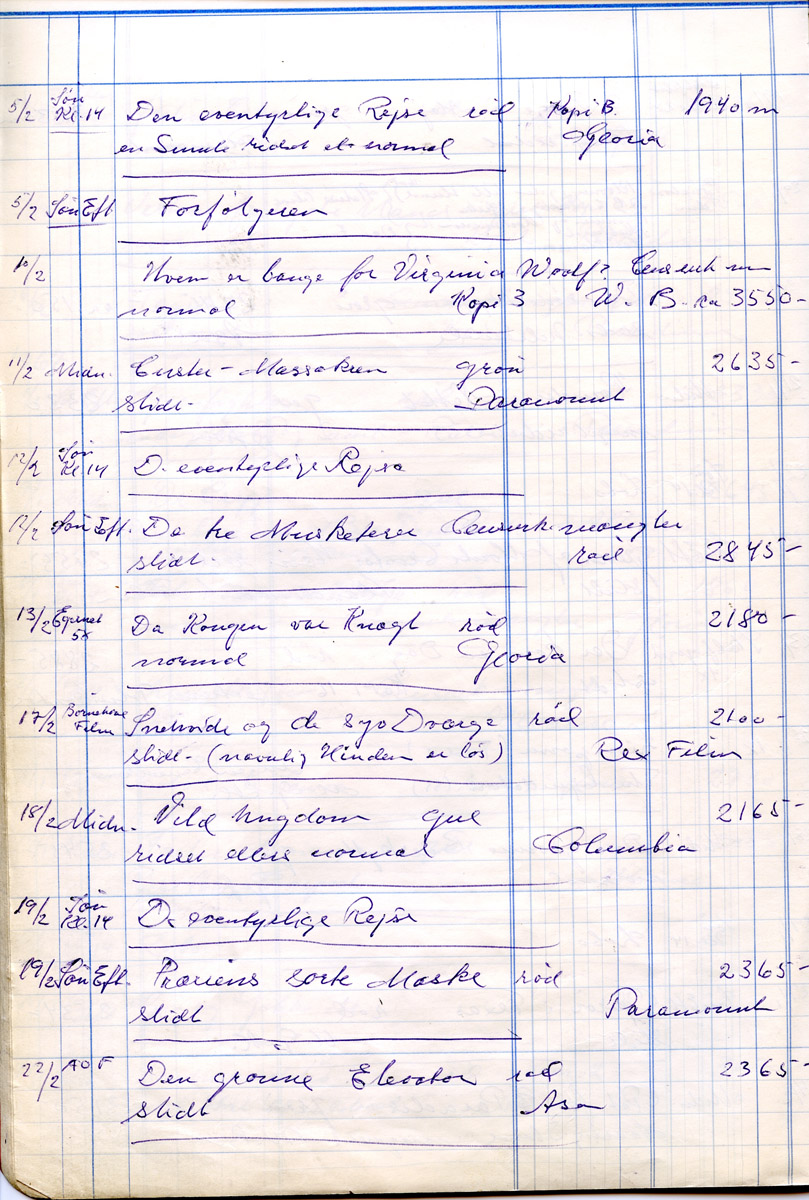 5/2 Søn Kl. 14 Den eventyrlige Rejse röd Kopi B. 1940 m
en Smule ridset el. normal Gloria
5/2 Søn Eft. Forfölgeren
10/2 Hvem er bange for Virginia Woolf?
normal Kopi 3 W. B. ca 3550-
11/2 Midn. Custer-Massakren grön 2635-
slidt- Paramount
12/2 Søn Kl. 14 D. eventyrlige Rejse
12/2 Søn Eft. De tre Musketerer Censurk. mangler
slidt. röd 2845-
13/2 Egnet 5x Da Kongen var Knægt röd 2180-
normal Gloria
17/2 Börnehave Film Snehvide og de syv Dværge röd 2100-
slidt- (navnlig Hinden er lös) Rex Film
18/2 Midn. Vild Ungdom gul 2165-
ridset ellers normal Columbia
19/2 Søn Kl. 14 De eventyrlige Rejse
19/2 Søn Eft. Præriens sorte Maske röd 2365-
slidt Paramount
22/2 AOF Den grønne Elevator röd 2365-
slidt Asa